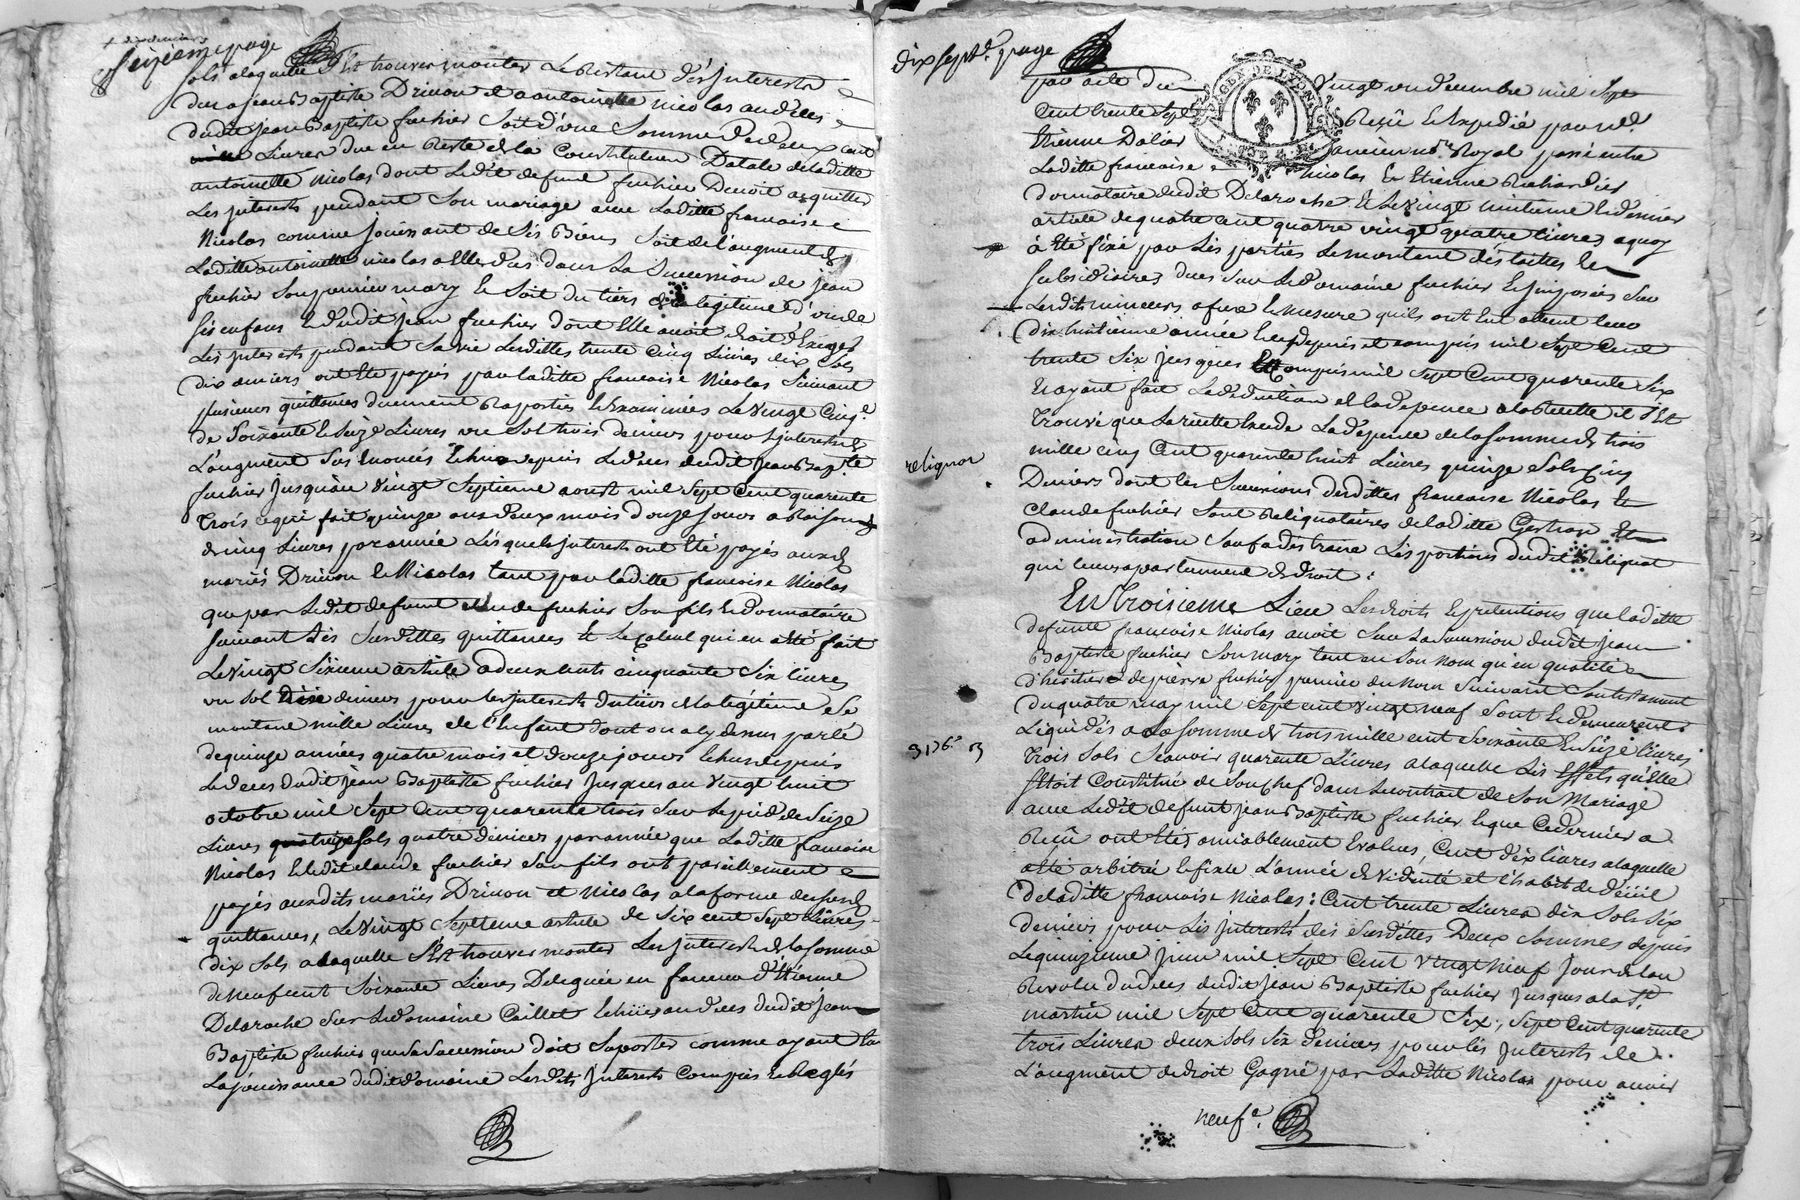 + dix deniers
Seizieme page
sols alaquelle s'Est trouver monter Le Restant d'és Interests
dus a jean Baptiste Drivon et a antoinette nicolas au d'éces
dudit jean Baptiste fuchier Soit d'une Somme De deux cent
Livres due en Reste de la Constitution Dotale de laditte
antoinette Nicolas dont Ledit defunt fuchier Devoit acquitter
Les Interests pendant Son mariage avec Laditte francoise
Nicolas comme Jouissant de Ses Biens Soit de l'augment de
Laditte antoinette nicolas a Elle dus dans La Succession de jean
fuchier Son premier mary Et Soit du tiers de la legitime d'un de
ses enfans Et dudit jean fuchier dont Elle avoit droit d'Exiger
Les Interests pendant Sa vie Lesdittes trente Cinq Livres dix Sols
Dix deniers ont Eté payés par laditte francoise Nicolas Suivant
plusieurs quittances duement Raportées Et Examinées Le Vingt Cinq.e
de Soixante Et Seize Livres un Sol trois deniers pour Interests de
L'augment Sus Enoncés Echus depuis Le d'éces dudit jean Bap.te
fuchier Jusqu'au Vingt Septieme aoust mil Sept Cent quarente
trois ce qui fait quinze ans d'eux mois douze Jours a Raison de
cinq Livres par année Lesquels Interests ont Eté payés auxd.
mariés Drivon Et Nicolas tant par laditte francoise Nicolas
que par Ledit defunt claude fuchier Son fils Et Donnataire
Suivant Les Susdittes quittances Et Le Calcul qui en a Eté fait
Le Vingt Sixieme article a deux cents cinquante Six Livres
un Sol deniers pour les Interests du tiers de la légitime Se
montant mille Livres de l'Enfant dont on a cy dessus parlé
de quinze années quatre mois et douze jours Echus depuis
Le deces dudit jean Baptiste fuchier Jusques au Vingt huit
octobre mil Sept Cent quarente trois Sur Le pied de Seize
Livres quatorze Sols quatre deniers par année que Laditte francoise
Nicolas Et Ledit claude fuchier Son fils ont pareillement
payés auxdits mariés Drivon et Nicolas a la forme desd.
quittances, Le Vingt Septieme article de Six cent Sept Livres
dix Sols a laquelle S'Est trouver monter Les Interests de la Somme
de Neuf cent Soixante Livres Deleguée en faveur d'Etienne
Delaroche Sur Le domaine Caillet Echus au d'éces dudit Jean
Baptiste fuchier que Sa Succession doit Suporter comme ayant Eu
La jouissance dudit domaine Lesdits Interests Compris Et Reglés
dix sept.e page
GEN DE LYON
par acte du Vingt un décembre mil Sept
Cent trente Sept Reçû Et Expedié par M.e
Etienne Dalier ancien no.re Royal passé entre
Laditte francoise Nicolas Et Etienne Richardier
Donnataire dudit Delaroche Et Le Vingt huitieme Et dernier
article de quatre cent quatre vingt quatre Livres a quoy
à Eté fixé par Les parties Le montant dés tailles Et
Subsidiaires dues Sur Le Domaine fuchier Et Imposées Sur
Lesdits mineurs a fur Et Mesure qu'ils ont Eut atteint Leur
Dix huitieme année Et ce depuis et compris mil Sept Cent
trente Six jusques Et Compris mil Sept Cent quarente Six
Et ayant fait La d'éduction de la dépence a la Recette il S'Est
trouvé que La recette Excede La d'épence de la Somme de trois
mille cinq Cent quarente huit Livres quinze Sols Cinq
reliquat
Deniers dont les Successions desdittes francoise Nicolas Et
claude fuchier Sont Reliquataires de laditte Gestion Et
administration Sauf a dés traire Les portions dudit Reliquat
qui Leurs apartiennent de droit :
En troisieme Lieu Les droits Et pretentions que laditte
defunte francoise Nicolas avoit Sur La Succession dudit jean
Baptiste fuchier Son mary tant en Son Nom qu'en qualité
d'héritiere de pierre fuchier premier du Nom Suivant Son testament
du quatre may mil Sept cent Vingt Neuf Sont Et demeurent
Liquidés a La Somme de trois mille cent Soixante Et Seize Livres
3176.# 3
trois Sols Scavoir quarente Livres a laquelle Les Effets qu'Elle
S'Etoit Constituée de Son Chef dans Le contrait de Son Mariage
avec Ledit defunt jean Baptiste fuchier Et que Ce dernier a
Reçû ont Etés amiablement Evalués, Cent dix livres a laquelle
a Eté arbitré Et fixée L'année de Viduité et l'habit de d'éüil
de laditte francoise Nicolas: Cent trente Livres dix Sols Six
Deniers pour Les Interests des Susdittes Deux Sommes depuis
Le quinzieme Juin mil Sept Cent Vingt Neuf Jour de l'an
Revolu du déces dudit Jean Baptiste fuchier Jusques a la S.t
martin mil Sept Cent quarente Six; Sept Cent quarente
trois Livres deux Sols Six Deniers pour les Interests de
L'augment de droit Gagné par Laditte Nicolas pour avoir
neuf.e